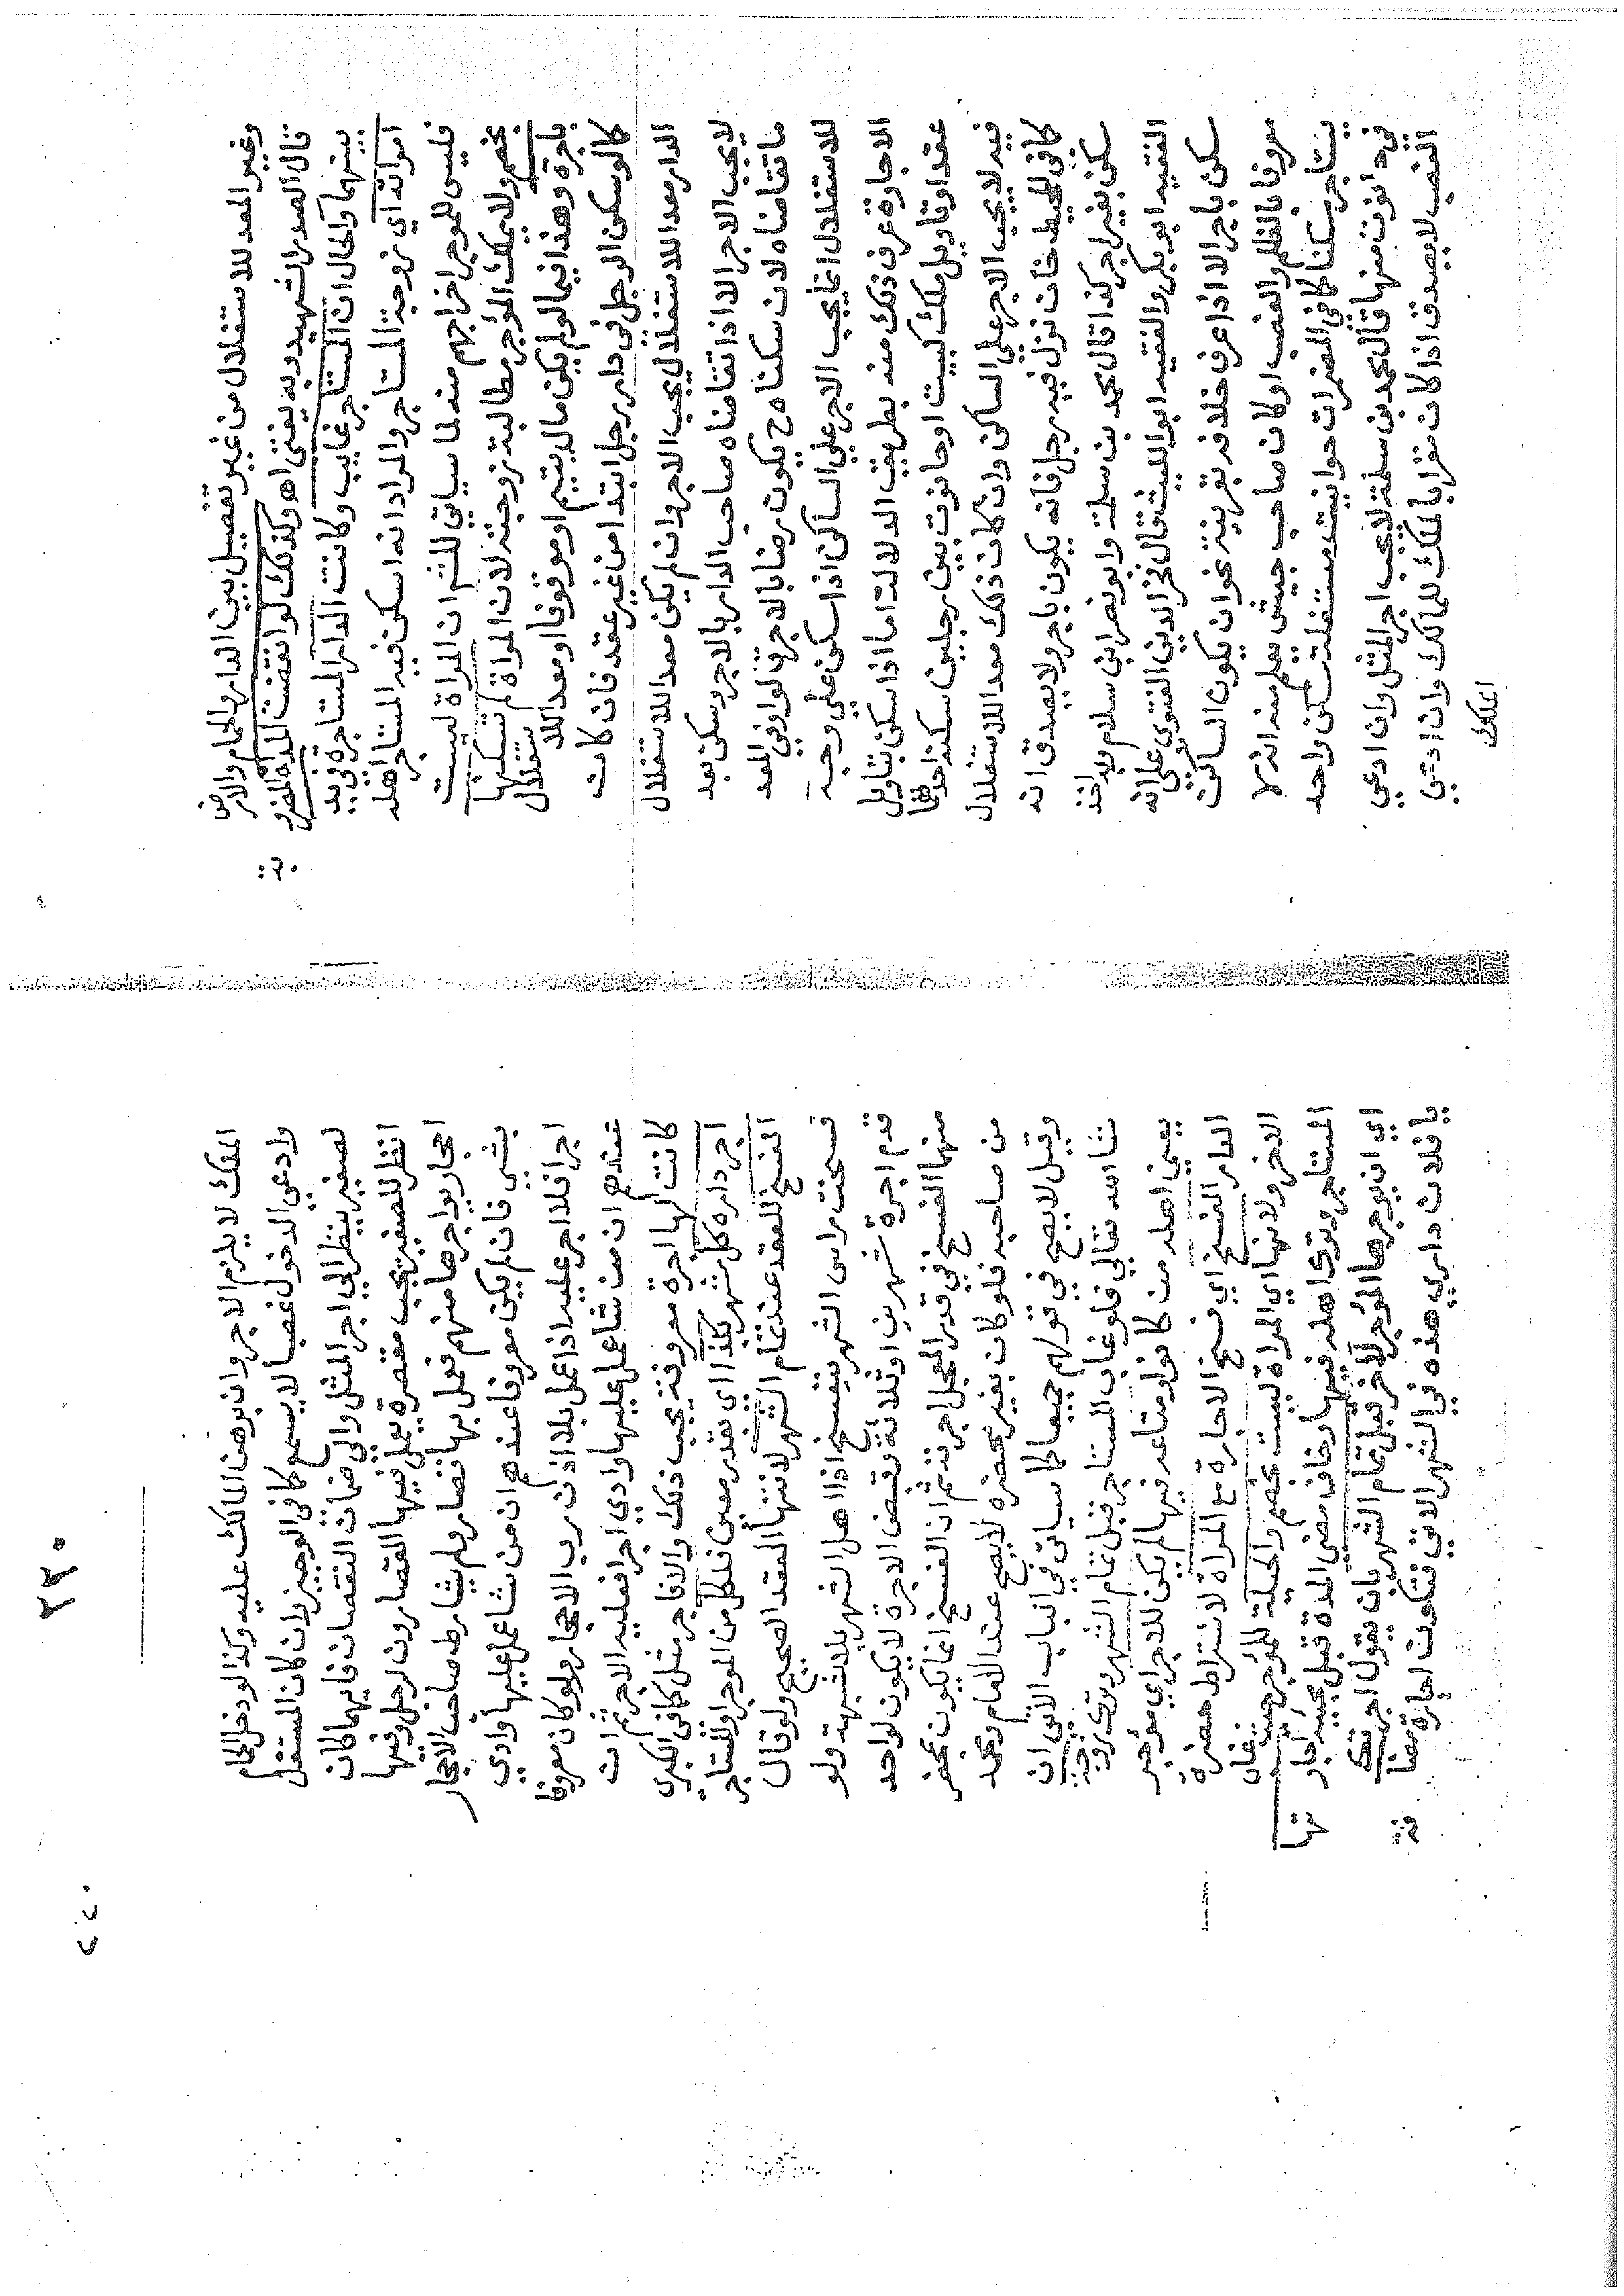 وغير المعد للاستغلال من غير تفصيل بين الدار والحمام والارض
قال الصدر الشهيد وبه يفتى اهـ وكذلك لو انقضت المدة المفرو
بينهما والحال ان المستاجر غايب وكانت الدار المستاجرة في يد
امراته اي زوجة المستاجر والمراد انه اسكن فيه المستاجر اهله
فليس للموجر اخراجهم منه لما سياتي للشم ان المراة ليست
بخصم ولا يملك المؤجر مطالبة زوجته لان المراة لم تسكنها
باجرة وهذا فيما لو لم يكن مال يتيم او موقوفا او معد اللا ستغلال
كما لو سكن الرجل في دار رجل ابتدا من غير عقد فان كانت
الدار معدا للاستغلال يجب الاجر وان لم يكن معدا للاستغلال
لا يجب الاجر الا اذا تقاضاه صاحب الدار بالاجر وسكن بعد
ما تقاضاه لان سكناه ح يكون رضا بالاجر قالوا وفي المعد
للاستغلال انما يجب الاجر على الساكن اذا سكن على وجه
الاجارة عرف ذلك منه بطريق الدلالة اما اذا سكن بتاويل
عقد او تاويل ملك كبيت او حانوت بين رجلين سكنه احدهما
فيه لا يجب الاجر على الساكن وان كان ذلك معدا للاستغلال
كما في المحيط خان نزل فيه رجل فانه يكون باجر ولا يصدق انه
سكن بغير اجر كذا قال محمد بن سلمة وابو نصر ابن سلام وبه اخذ
الفقيه ابو بكر والفقيه ابو الليث قال فخر الدين الفتوى على انه
سكن باجر الا اذا عرف خلافه بقرينة نحو ان يكون الساكن
معروفا بالظلم والغصب او كان صاحب جيش يعلم منه انه لا
يستاجر سكنا كما في المضمرات حوانيت مستغلة سكن واحد
في حانوت منها قال محمد بن سلمة لا يجب اجر المثل وان ادعى
الغصب لا يصدق اذا كان مقرا بالملك للمالك وان ادعى
الملك
٢٢٠
الملك لا يلزم الاجر وان برهن المالك عليه وكذا لو دخل الحمام
وادعى الدخول غصبا لا يسمع كما في الوجيز وان كان المستغل
لصغير ينظر الى اجر المثل والى ضمان النقصان فايهما كان
انظر للصغير يجب مقصرة يعمل فيها القصارون لرجل وفيها
احجار يواجرها منهم فعمل بها قصار ولم يشارط صاحب الاحجار
بشي فان لم يكن معروفا عندهم ان من شا عمل عليها وادي
اجرا فلا اجر عليه اذا عمل بلا اذن رب الاحجار ولو كان معروفا
عندهم ان من شا عمل عليها وادي اجرا فعليه الاجر ثم ان
كانت لها اجرة معروفة يجب ذلك والا فاجر مثل كما في الكبرى
اجر داره كل شهر بكذا اي بقدر معين فلكل من الموجر والمستاجر
الفسخ للعقد عند تمام الشهر لانتها العقد الصحيح ولو قال
فسخت راس الشهر ينفسخ اذا اهل الشهر بلا شبهة ولو
قدم اجرة شهرين او ثلاثة وقبض الاجرة لا يكون لواحد
منهما الفسخ في قدر المعجل اجرته ثم ان الفسخ انما يكون بمحضر
من صاحبه فلو كان بغير محضره لا يصح عند الامام ومحمد
وقيل لا يصح في قولهم جميعا كما سياتي في الباب الاتي ان
شا الله تعالى فلو غاب المستاجر قبل تمام الشهر وترك زوجته
يعني اهله من كانوا ومتاعه فيها لم يكن للاجر اي مؤجر
الدار الفسخ اي فسخ الاجارة مع المراة لاشتراط حضرة
الاخر ولانها اي المراة ليست بخصم والحيلة للمؤجر حيث غاب
المستاجر وترك اهله فيها وخاف مضي المدة قبل مجيئه اجار تها
اي ان يوجرها المؤجر لاخر قبل تمام الشهر بان يقول اجرتك
يا فلان داري هذه في الشهر الاتي فتكون اجارة مضا فة
٢٤٠